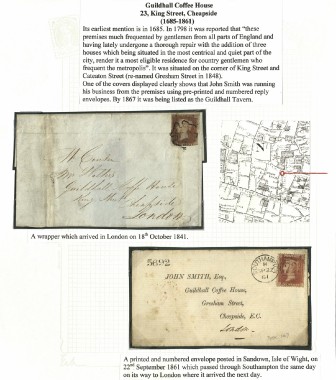 Guildhall Coffee House
23, King Street, Cheapside
(1685-1861)
Its earliest mention is in 1685. In 1798 it was reported that "these
premises much frequented by gentlemen from all parts of England and
having lately undergone a thorough repair with the addition of three
houses which being situated in the most centrical and quiet part of the
city, render it a most eligible residence for country gentlemen who
frequent the metropolis". It was situated on the corner of King Street and
Cateaton Street (re-named Gresham Street in 1848).
One of the covers displayed clearly shows that John Smith was running
his business from the premises using pre-printed and numbered reply
envelopes. By 1867 it was being listed as the Guildhall Tavern.
Guildhall Coffee House
London
A wrapper which arrived in London on 18th October 1841.
5692
JOHN SMITH, Esq.,
Guildhall Coffee House,
Gresham Street,
Cheapside, E.C.
London
A printed and numbered envelope posted in Sandown, Isle of Wight, on
22nd September 1861 which passed through Southampton the same day
on its way to London where it arrived the next day.